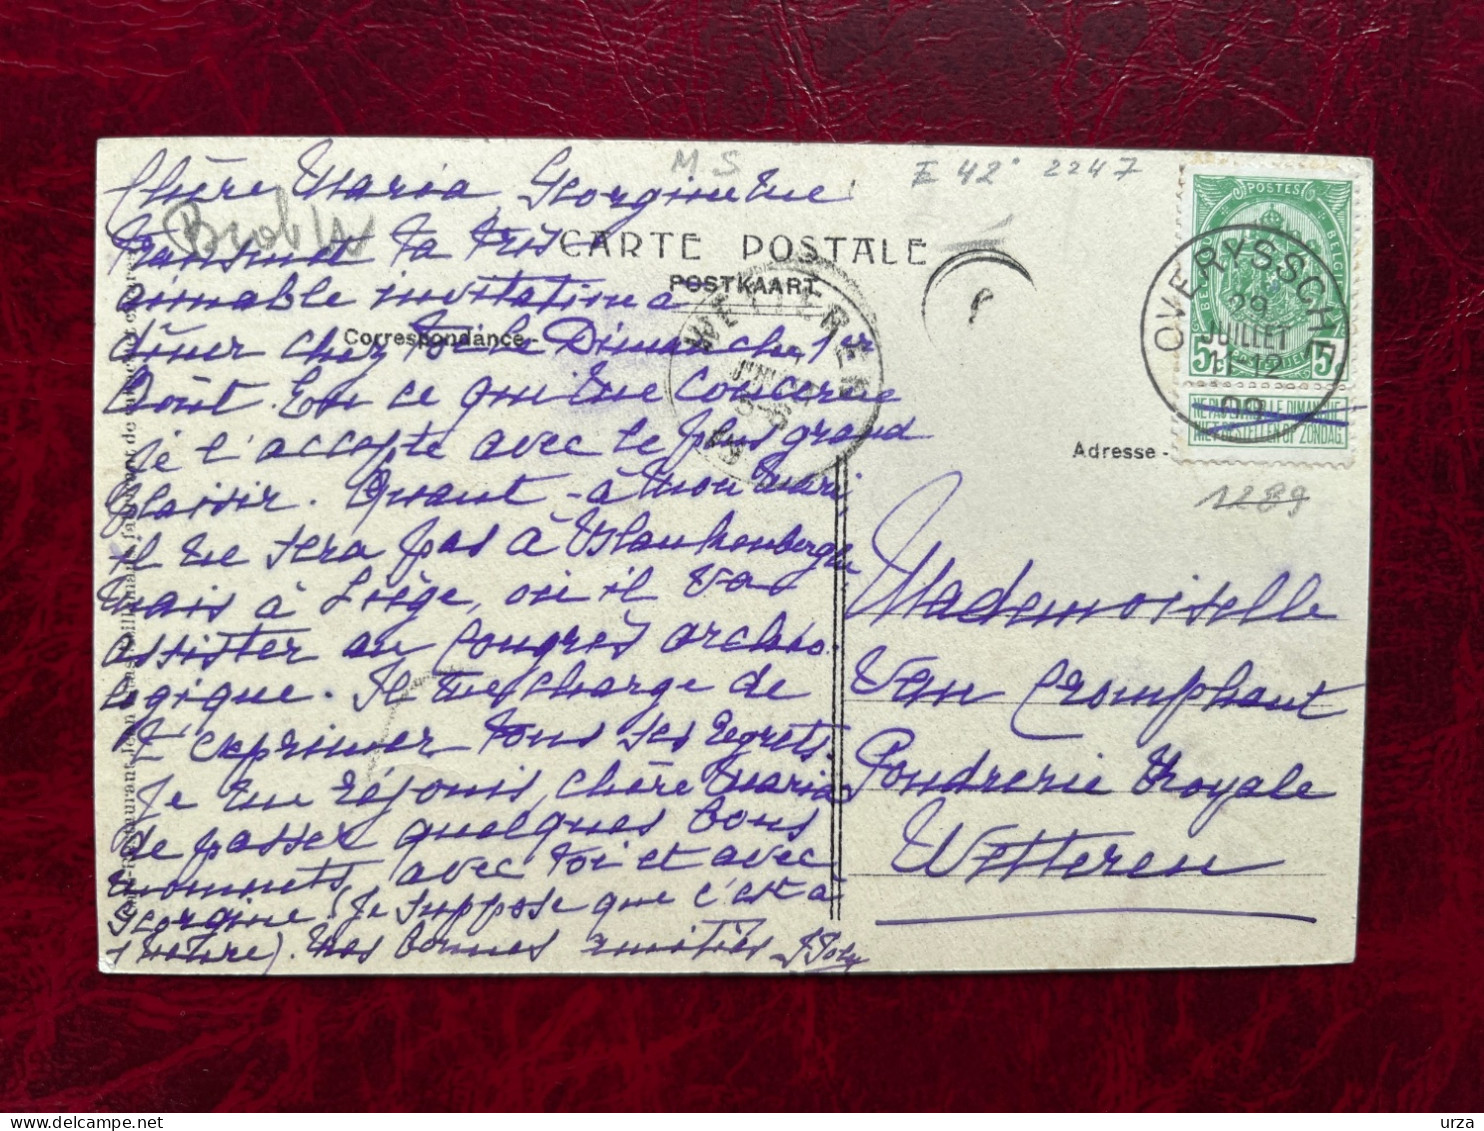 M.S
E 42° 2247
Chère Maria, Georgine me
transmet ta très
aimable invitation à
dîner chez toi le Dimanche 1er
Août. En ce qui me concerne
je l'accepte avec le plus grand
plaisir. Quant à mon mari
il ne sera pas à Blankenberghe
mais à Liège, où il va
assister au Congrès archéo-
logique. Il me charge de
t'exprimer tous ses regrets.
Je me réjouis, chère Maria
de passer quelques bons
moments avec toi et avec
Georgine. (Je suppose que c'est à
). Mes bonnes amitiés
CARTE POSTALE
POSTKAART
Correspondance -
WETTEREN
POSTES
OVERYSSCHE
29
JUILLET
09
5c 5c
NE PAS LIVRER LE DIMANCHE
NIET BESTELLEN OP ZONDAG
Adresse -
1289
Mademoiselle
Van Cromphaut
Poudrerie Royale
Wetteren
urza